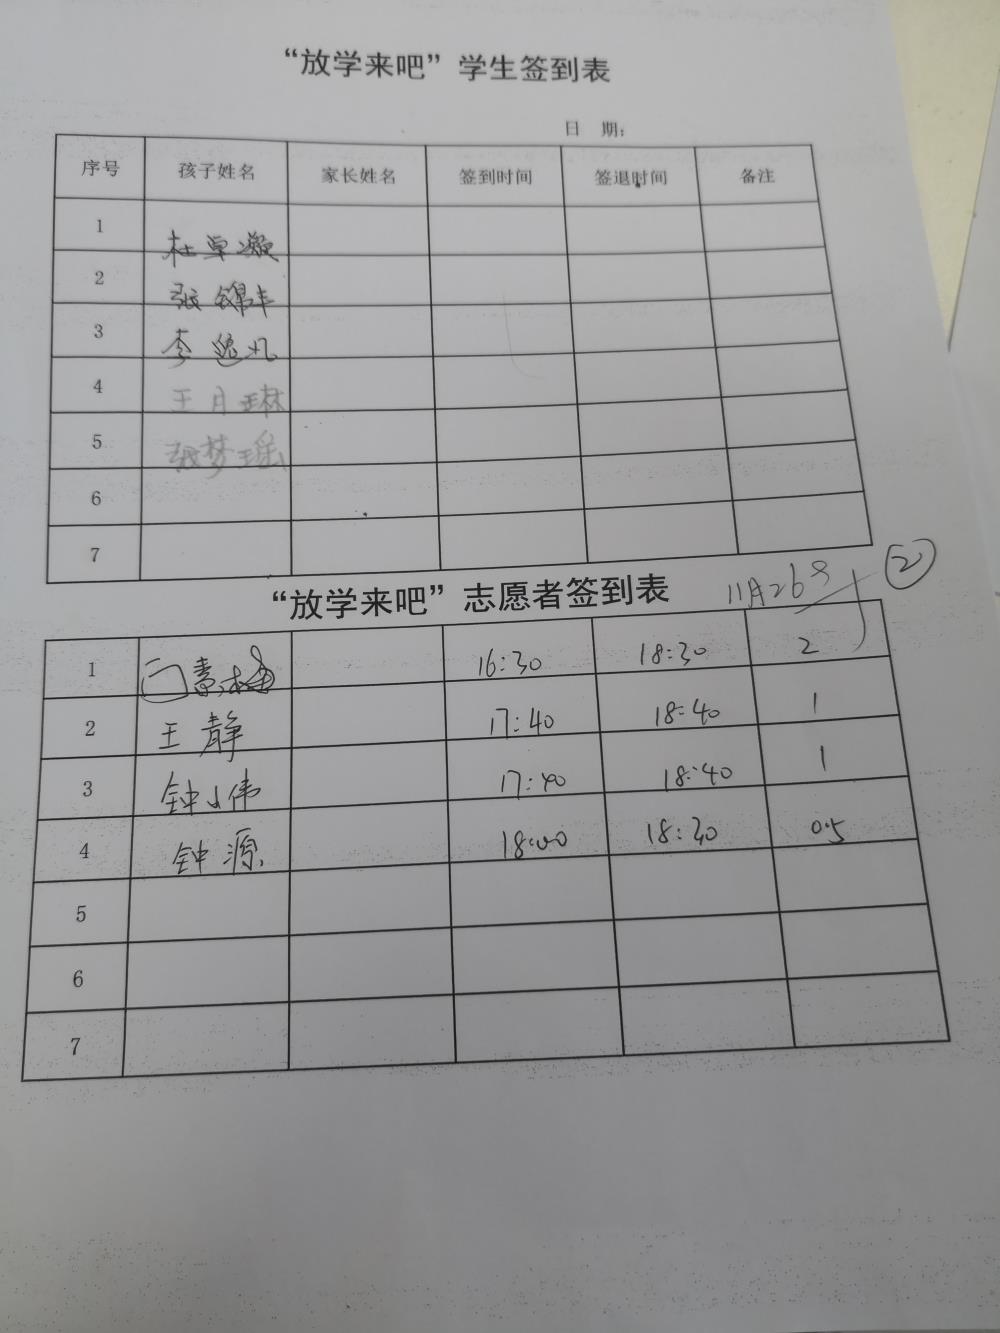 “放学来吧”学生签到表
日 期：
序号 孩子姓名 家长姓名 签到时间 签退时间 备注
1 杜卓凝
2 张锦丰
3 李逸凡
4 王月琳
5 张梦瑶
6
7
“放学来吧”志愿者签到表 11月26号 ②
1 16:30 18:30 2
2 王静 17:40 18:40 1
3 钟小伟 17:40 18:40 1
4 钟源 18:00 18:30 0.5
5
6
7